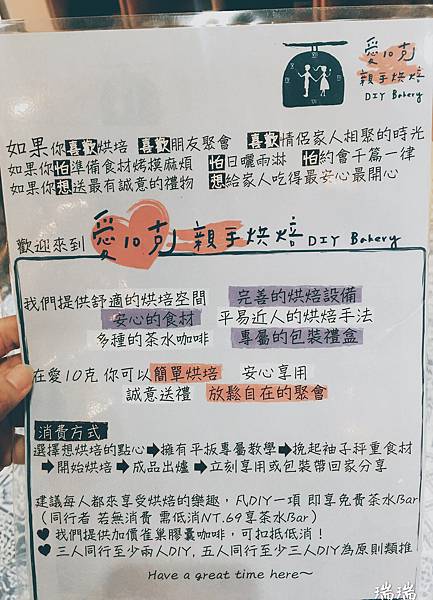 愛10克
親手烘焙
DIY Bakery
如果你喜歡烘焙 喜歡朋友聚會 喜歡情侶家人相聚的時光
如果你怕準備食材烤摸麻煩 怕日曬雨淋 怕約會千篇一律
如果你想送最有誠意的禮物 想給家人吃得最安心最開心
歡迎來到 愛10克 親手烘焙 DIY Bakery
我們提供舒適的烘焙空間 完善的烘焙設備
安心的食材 平易近人的烘焙手法
多種的茶水咖啡 專屬的包裝禮盒
在愛10克 你可以簡單烘焙 安心享用
誠意送禮 放鬆自在的聚會
消費方式
選擇想烘焙的點心➡擁有平板專屬教學➡挽起袖子秤重食材
➡開始烘焙➡成品出爐➡立刻享用或包裝帶回家分享
建議每人都來享受烘焙的樂趣，凡DIY一項 即享免費茶水Bar
（同行者 若無消費 需低消NT.69享茶水Bar）
♥ 我們提供加價雀巢膠囊咖啡，可扣抵低消！
♥ 三人同行至少兩人DIY, 五人同行至少三人DIY為原則類推
Have a great time here～
瑞瑞